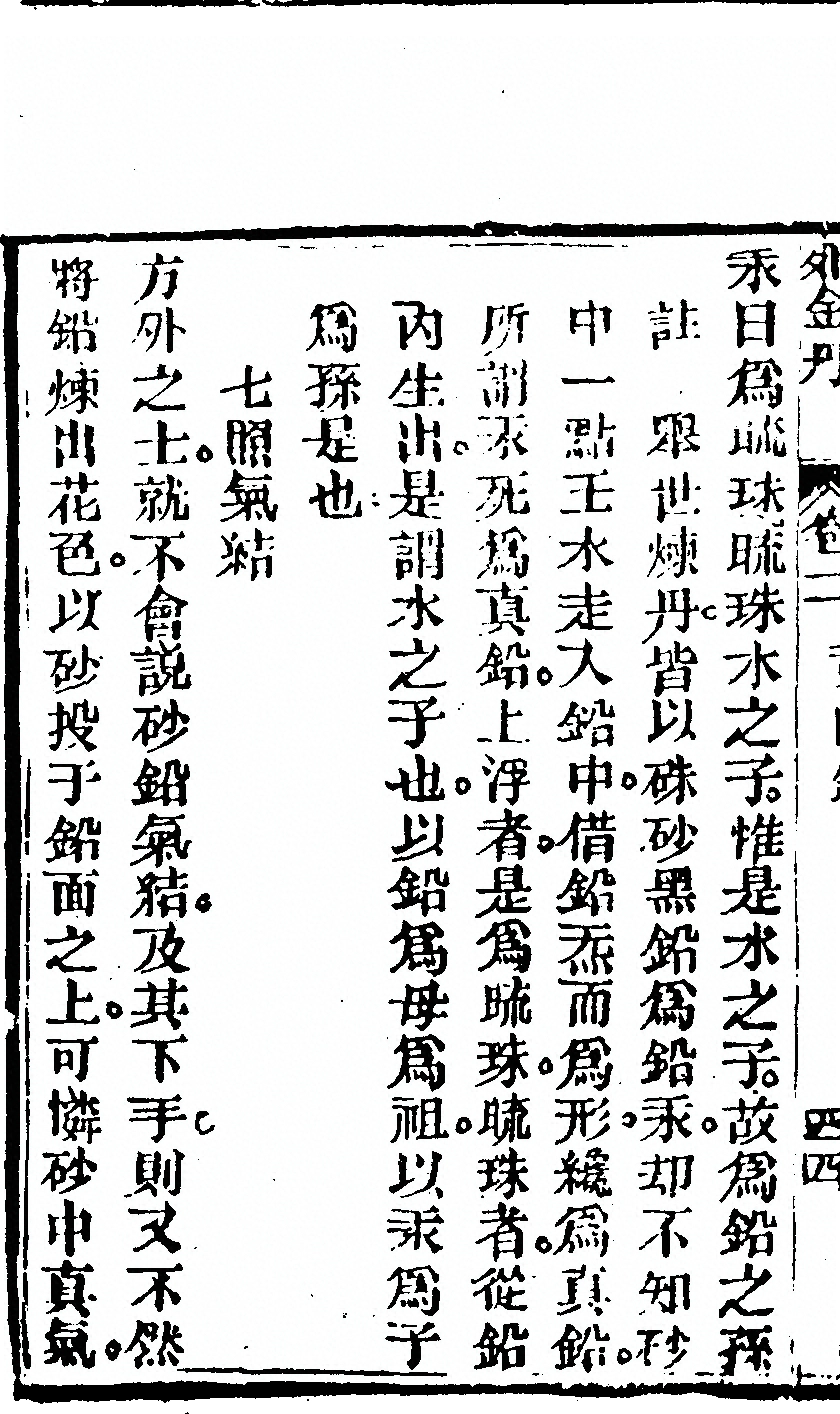 外金丹 卷一 四四
汞曰為琉珠琉珠水之子惟是水之子故為鉛之孫
註 舉世煉丹皆以硃砂黑鉛為鉛汞却不知砂
中一點壬水走入鉛中借鉛炁而為形纔為真鉛
所謂汞死為真鉛上浮者是為琉珠琉珠者從鉛
內生出是謂水之子也以鉛為母為祖以汞為子
為孫是也
七照氣結
方外之士就不會說砂鉛氣結及其下手則又不然
將鉛煉出花色以砂投于鉛面之上可憐砂中真氣